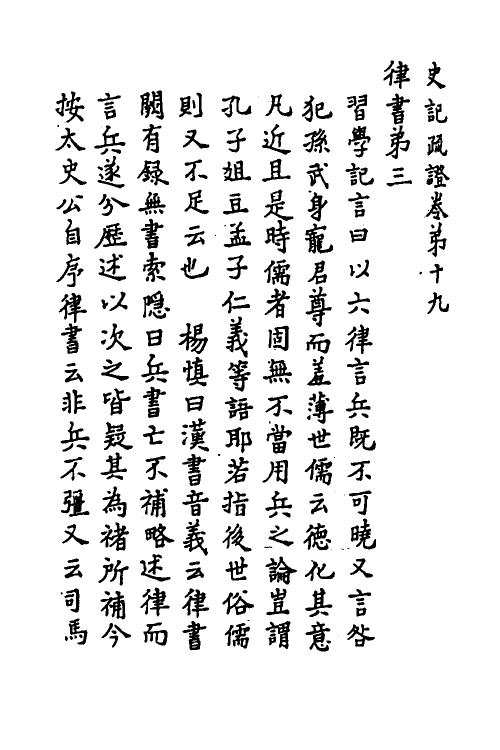 史記疏證卷第十九
律書第三
習學記言曰以六律言兵既不可曉又言咎
犯孫武身寵君尊而羞薄世儒云德化其意
凡近且是時儒者固無不當用兵之論豈謂
孔子姐豆孟子仁義等語耶若指後世俗儒
則又不足云也　楊慎曰漢書音義云律書
闕有録無書索隱曰兵書亡不補略述律而
言兵遂分歷述以次之皆疑其為褚所補今
按太史公自序律書云非兵不彊又云司馬